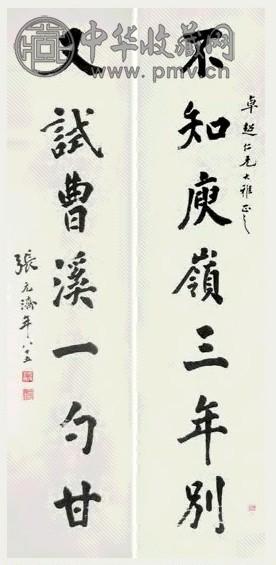 中华收藏网
www.pmv.cn
卓超仁兄大雅正之
不知庾嶺三年別
又試曹溪一勺甘
張元濟年八十五